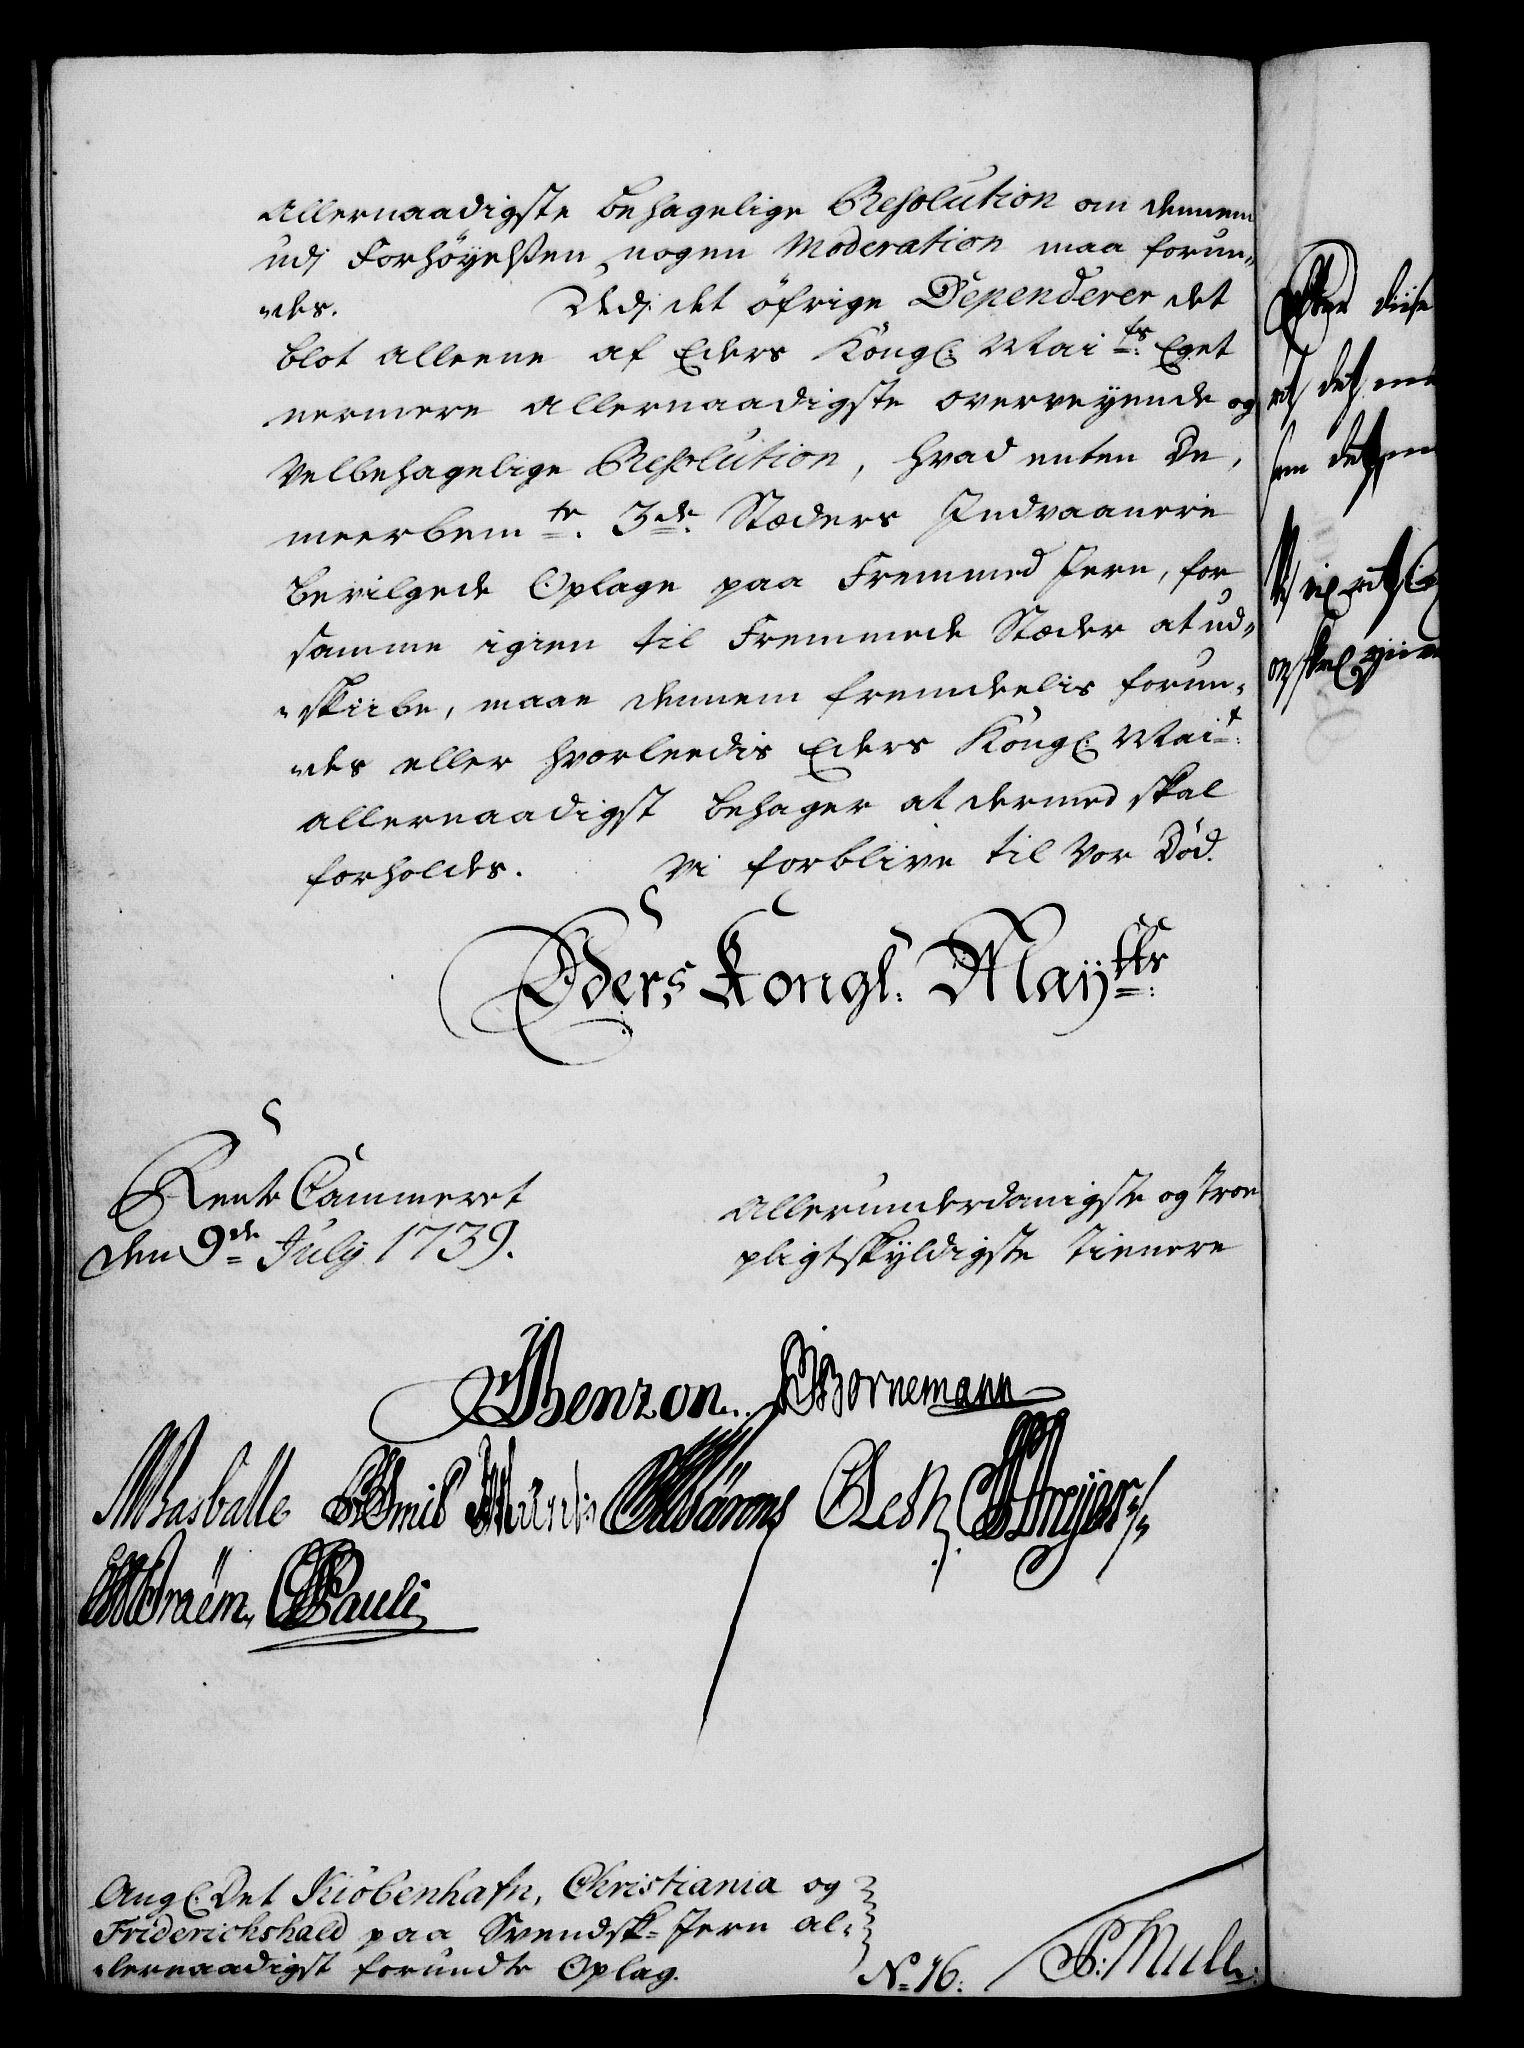 Allernaadigste behagelige Resolution om dennem
udj Forhöyelßen nogen Moderation maa forun„
„des. Udj det öfrige Dependerer det
blot alleene af Eders Kongl: Mai ts: Eget
nermere allernaadigste overveyende og
Velbehagelige Resolution, hvad enten De,
meerbem te. 3de Stæders Indvaanere
bevilgede Oplage paa Fremmed Jern, for
samme igien til Fremmede Stæder at ud„
„skiibe, maae dennem fremdeelis forun„
„des eller hvorleedis Eders Kongl: Mai t:
allernaadigst behager at dermed skal
forholdes. Vi forblive til Vor Död.
Eders Kongl: Maytts:
Rente Cammeret
den 9de July 1739.
Allerunderdanigste og troe
pligtskyldigste Tienere
Benzon. Bornemann
Basballe
Braëm. Pauli
Angl: Det Kiöbenhafn, Christiania og
Friderichshald paa Svendsk= Jern al„
„lernaadigst forundte Oplag.
No 16: